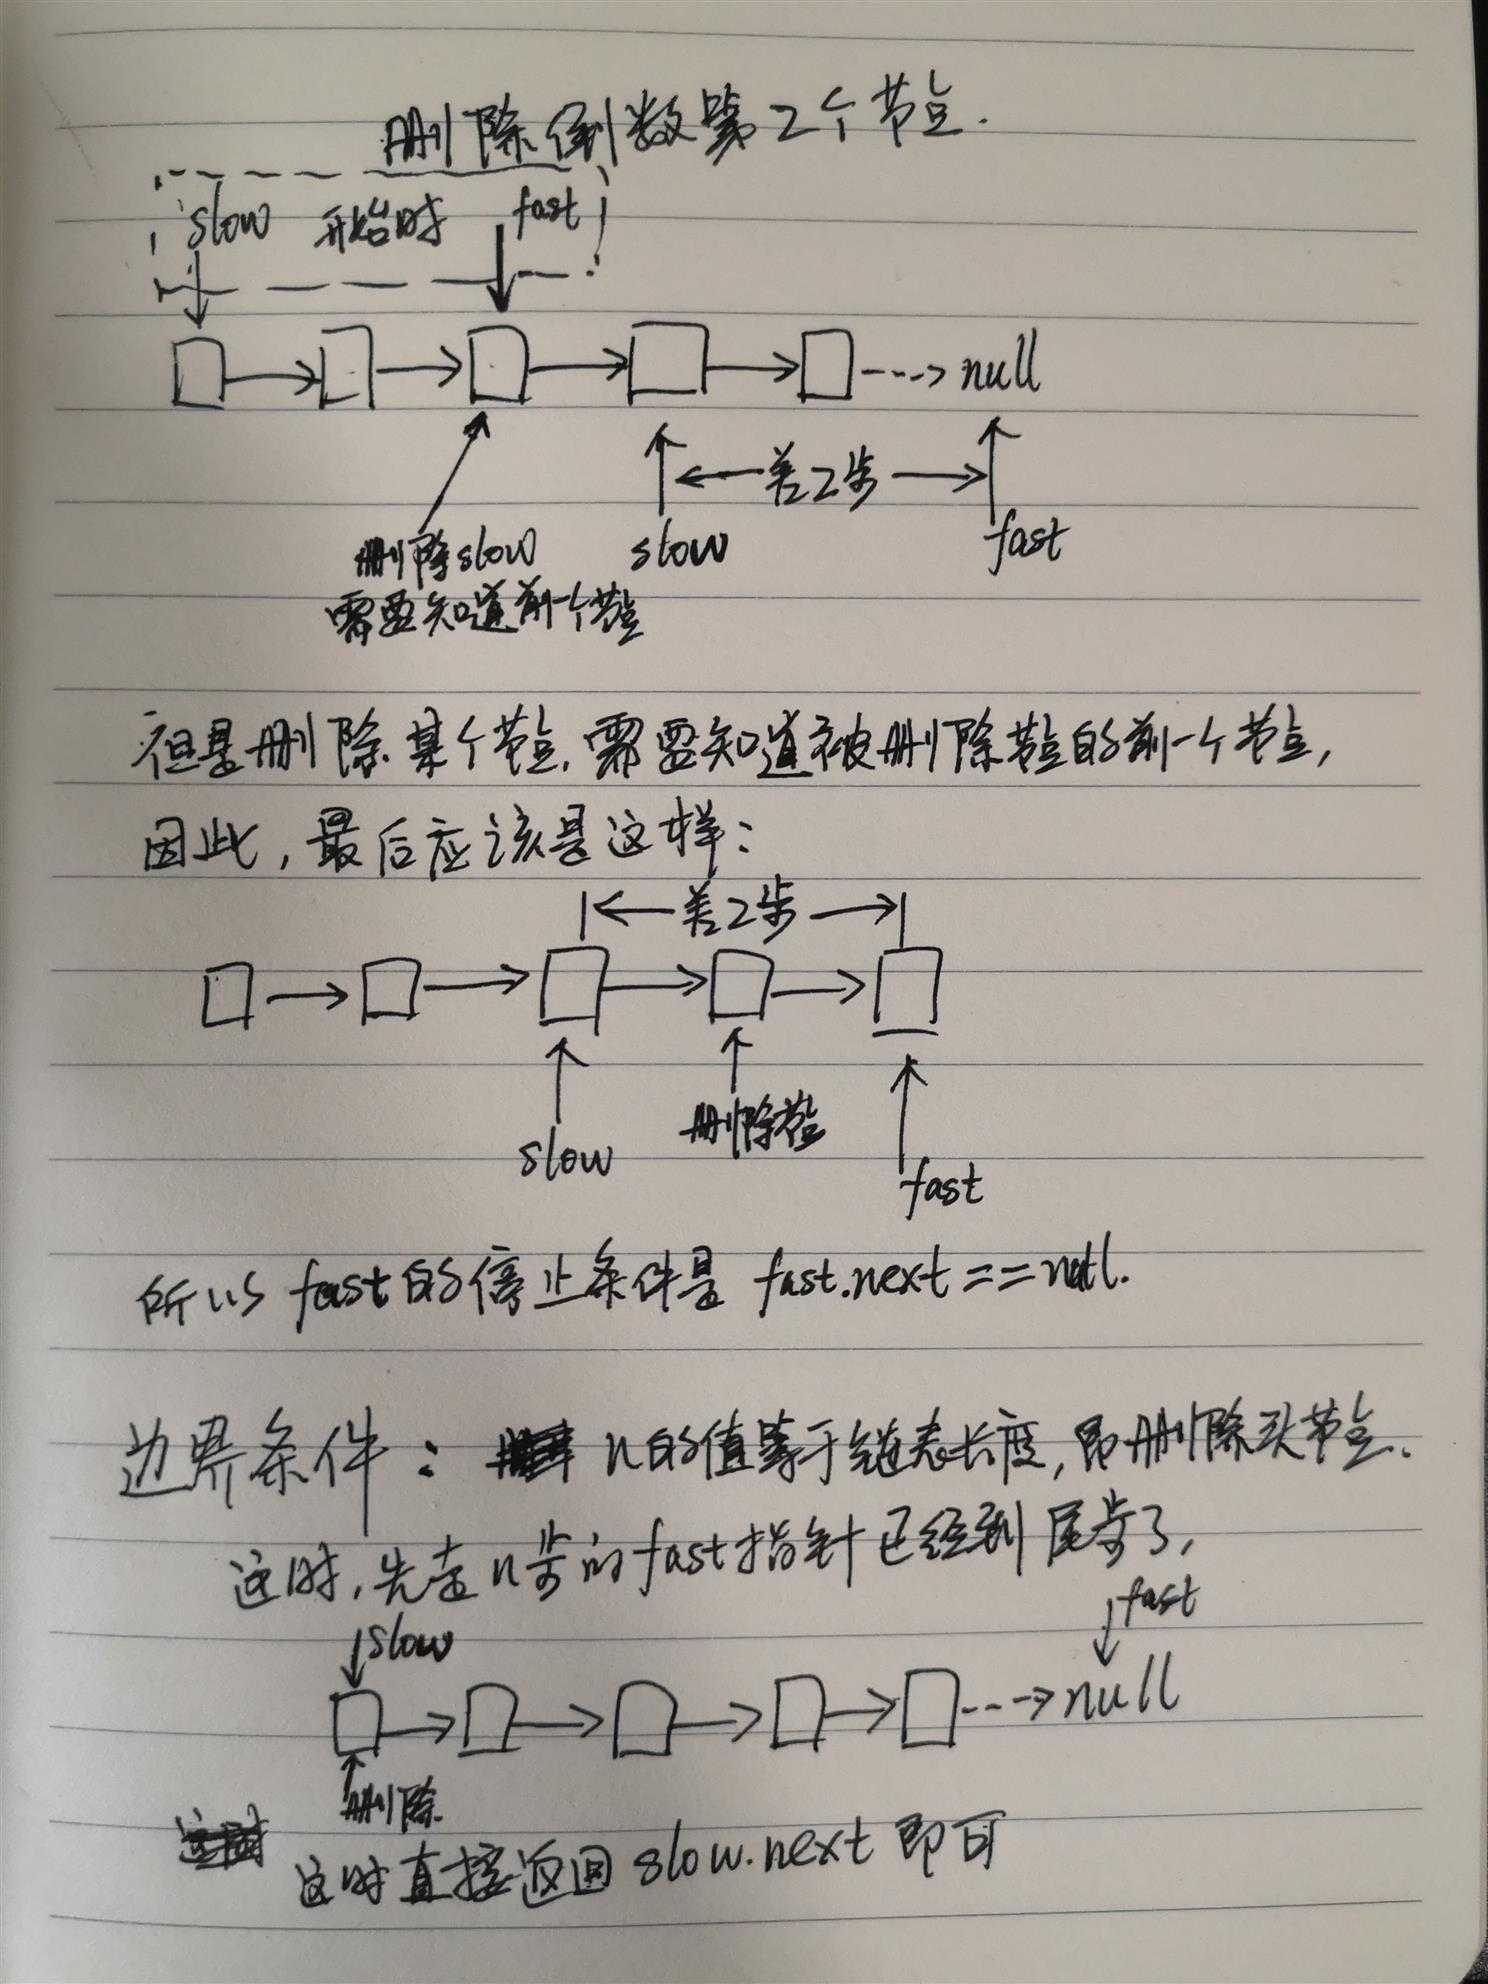 删除倒数第2个节点.
slow 开始时 fast
null
差2步
删除slow slow fast
需要知道前一个节点
但是删除某个节点,需要知道被删除节点的前一个节点,
因此,最后应该是这样:
差2步
删除节点
slow
fast
所以fast的停止条件是 fast.next==null.
边界条件: n的值等于链表长度,即删除头节点.
这时,先走n步的fast指针已经到尾步了,
slow fast
null
删除
这时直接返回slow.next即可